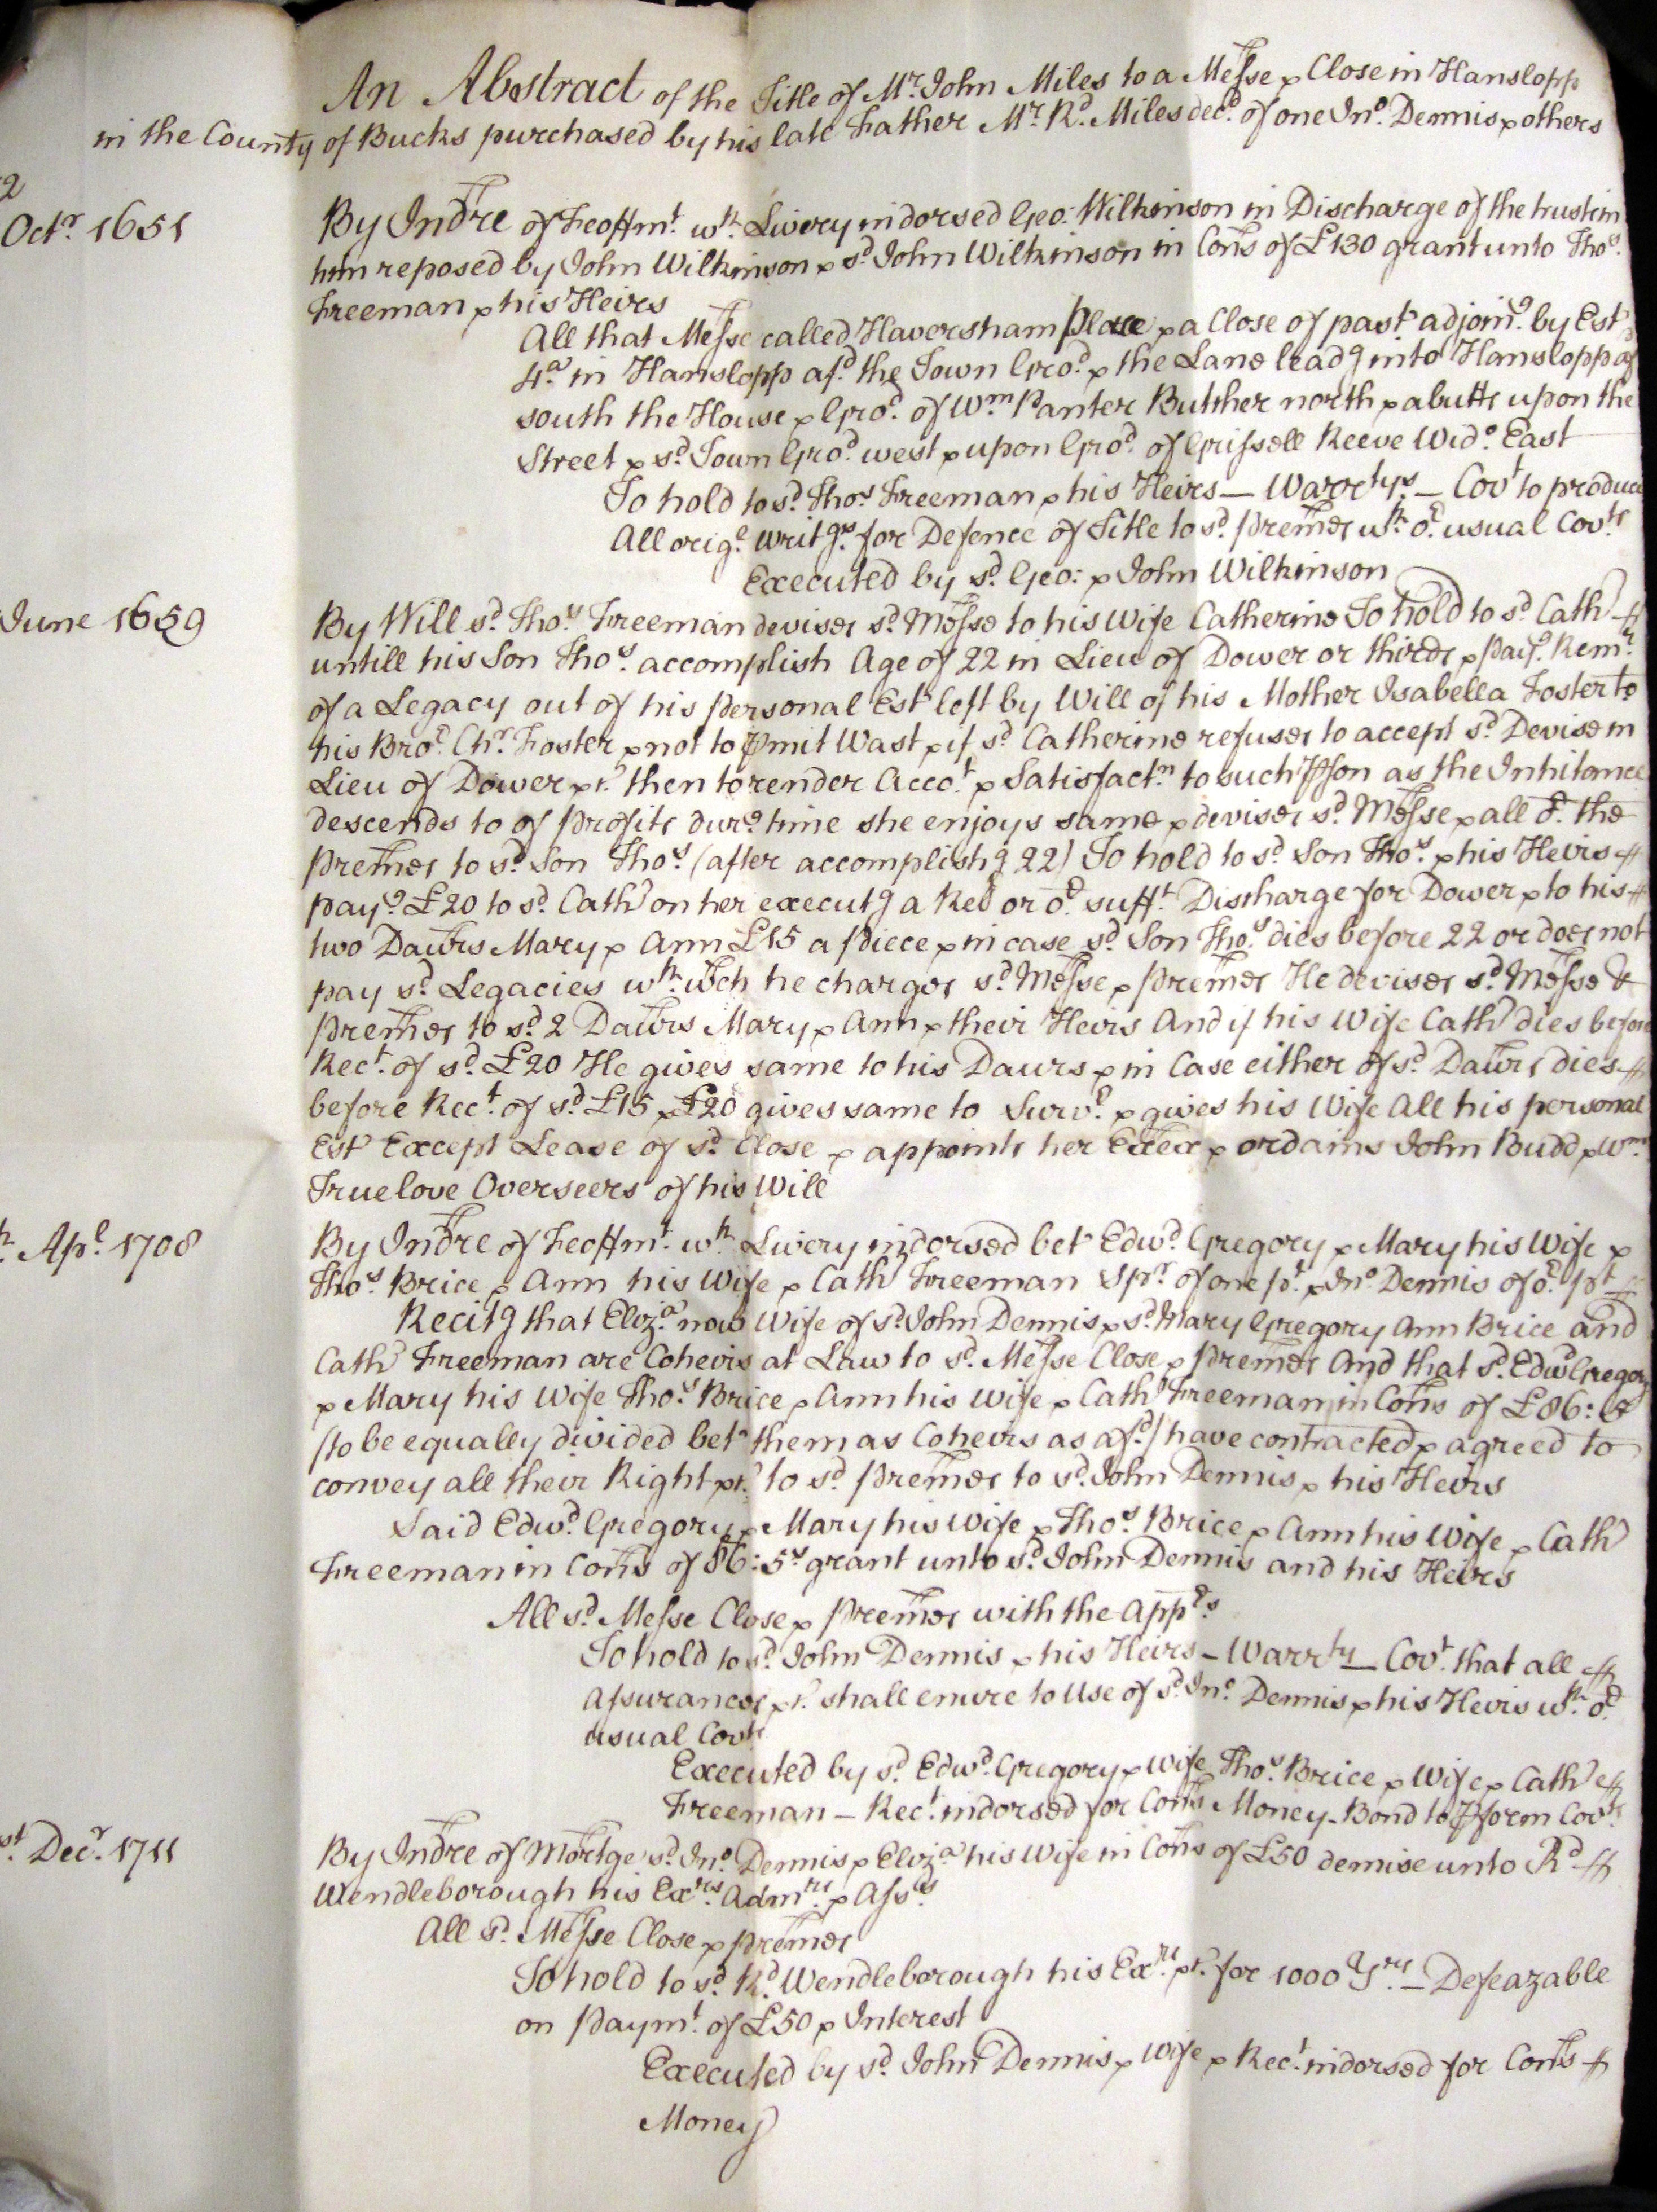 An Abstract of the Title of Mr. John Miles to a Messe & Close in Hanslopp
in the County of Bucks purchased by his late Father Mr. Rd. Miles decd. of one Jno. Dennis & others
2
Octr. 1651
By Indre of Feoffmt. wth. Livery indorsed Geo: Wilkinson in Discharge of the trust in
him reposed by John Wilkinson & sd. John Wilkinson in Cons of £130 grant unto Thos.
Freeman & his Heirs
All that Messe called Haversham Place & a Close of past adjoing. by Est
4a. in Hanslopp afd. the Town Grod. & the Lane leadg into Hanslopp afd
south the House & Grod. of Wm Panter Butcher north & abutts upon the
Street & sd. Town Grod. west & upon Grod. of Grissell Reeve Wido. East
To hold to sd. Thos. Freeman & his Heirs — Warrtys. — Covt to produce
All origl. writgs. for Defence of Title to sd. premes wth. or. usual Covts
Executed by sd. Geo: & John Wilkinson
June 1659
By Will sd. Thos. Freeman devises sd. Messe to his Wife Catherine To hold to sd. Cath
untill his Son Thos. accomplish Age of 22 in Lieu of Dower or thirds & payg. Remr.
of a Legacy out of his personal Est left by Will of his Mother Isabella Foster to
his Bror. Chr. Foster & not to pmit Wast & if sd. Catherine refuses to accept sd. Devise in
Lieu of Dower &c. then to render Accot. & Satisfactn to such pson as the Inhitance
descends to of profits durg. time she enjoys same & devises sd. Messe & all or. the
premes to sd. Son Thos. (after accomplishg 22) To hold to sd. Son Thos. & his Heirs
payg. £20 to sd. Cath on her executg a Rel or or. sufft. Discharge for Dower & to his
two Dautrs Mary & Ann £15 a piece & in case sd. Son Thos. dies before 22 or does not
pay sd. Legacies wth. wch he charges sd. Messe & premes He devises sd. Messe &
premes to sd. 2 Dautrs Mary & Ann & their Heirs And if his Wife Cath dies before
Rect. of sd. £20 He gives same to his Daurs & in Case either of sd. Dautrs dies
before Rect. of sd. £15 & £20 gives same to Survr. & gives his Wife All his personal
Est Except Lease of sd. Close & appoints her Exex & ordains John Budd & Wm.
Truelove Overseers of his Will
Apl. 1708
By Indre of Feoffmt. wth Livery indorsed bet Edwd. Gregory & Mary his Wife &
Thos. Brice & Ann his Wife & Cath Freeman Spr. of one pt. & Jno. Dennis of or. pt
Recitg that Eliza. now Wife of sd. John Dennis & sd. Mary Gregory Ann Brice and
Cath Freeman are Coheirs at Law to sd. Messe Close & premes And that sd. Edwd Gregory
& Mary his Wife Thos. Brice & Ann his Wife & Cath Freeman in Cons of £86: 5
(to be equally divided betn them as Coheirs as afd.) have contracted & agreed to
convey all their Right &c. to sd. premes to sd. John Dennis & his Heirs
Said Edwd. Gregory & Mary his Wife & Thos. Brice & Ann his Wife & Cath
Freeman in Cons of 86: 5s grant unto sd. John Dennis and his Heirs
All sd. Messe Close & premes with the Appts
To hold to sd. John Dennis & his Heirs – Warrty — Covt. that all
Assurances &c. shall enure to Use of sd. Jno. Dennis & his Heirs wth. or.
usual Covts
Executed by sd. Edwd. Gregory & Wife Thos. Brice & Wife & Cath
Freeman – Rect. indorsed for Cons Money – Bond to pform Covts
st. Decr. 1711
By Indre of Mortge sd. Jno. Dennis & Eliza his Wife in Cons of £50 demise unto Rd
Wendleborough his Exrs. Admrs. & Asss
All sd. Messe Close & premes
To hold to sd. Rd. Wendleborough his Exrs. &c. for 1000 Yrs. – Defeazable
on paymt. of £50 & Interest
Executed by sd. John Dennis & Wife & Rect. indorsed for Cons
Money